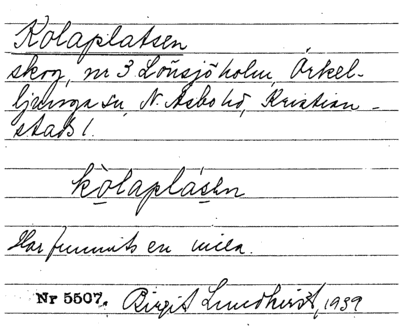 Kolaplatsen
skog, nr 3 Lönsjöholm, Örkel-
ljunga sn, N. Åsbo hd, Kristian-
stads l.
kòlaplásen
Har funnits en mila.
Nr 5507. Birgit Lundkvist, 1939